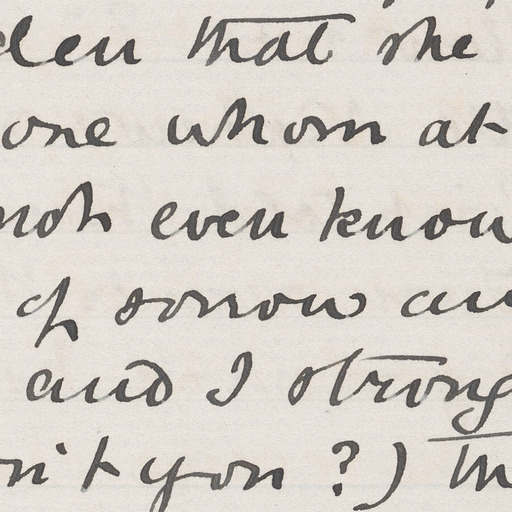 den that she
one whom at
not even know
of sorrow an
and I strong
n't you?) th